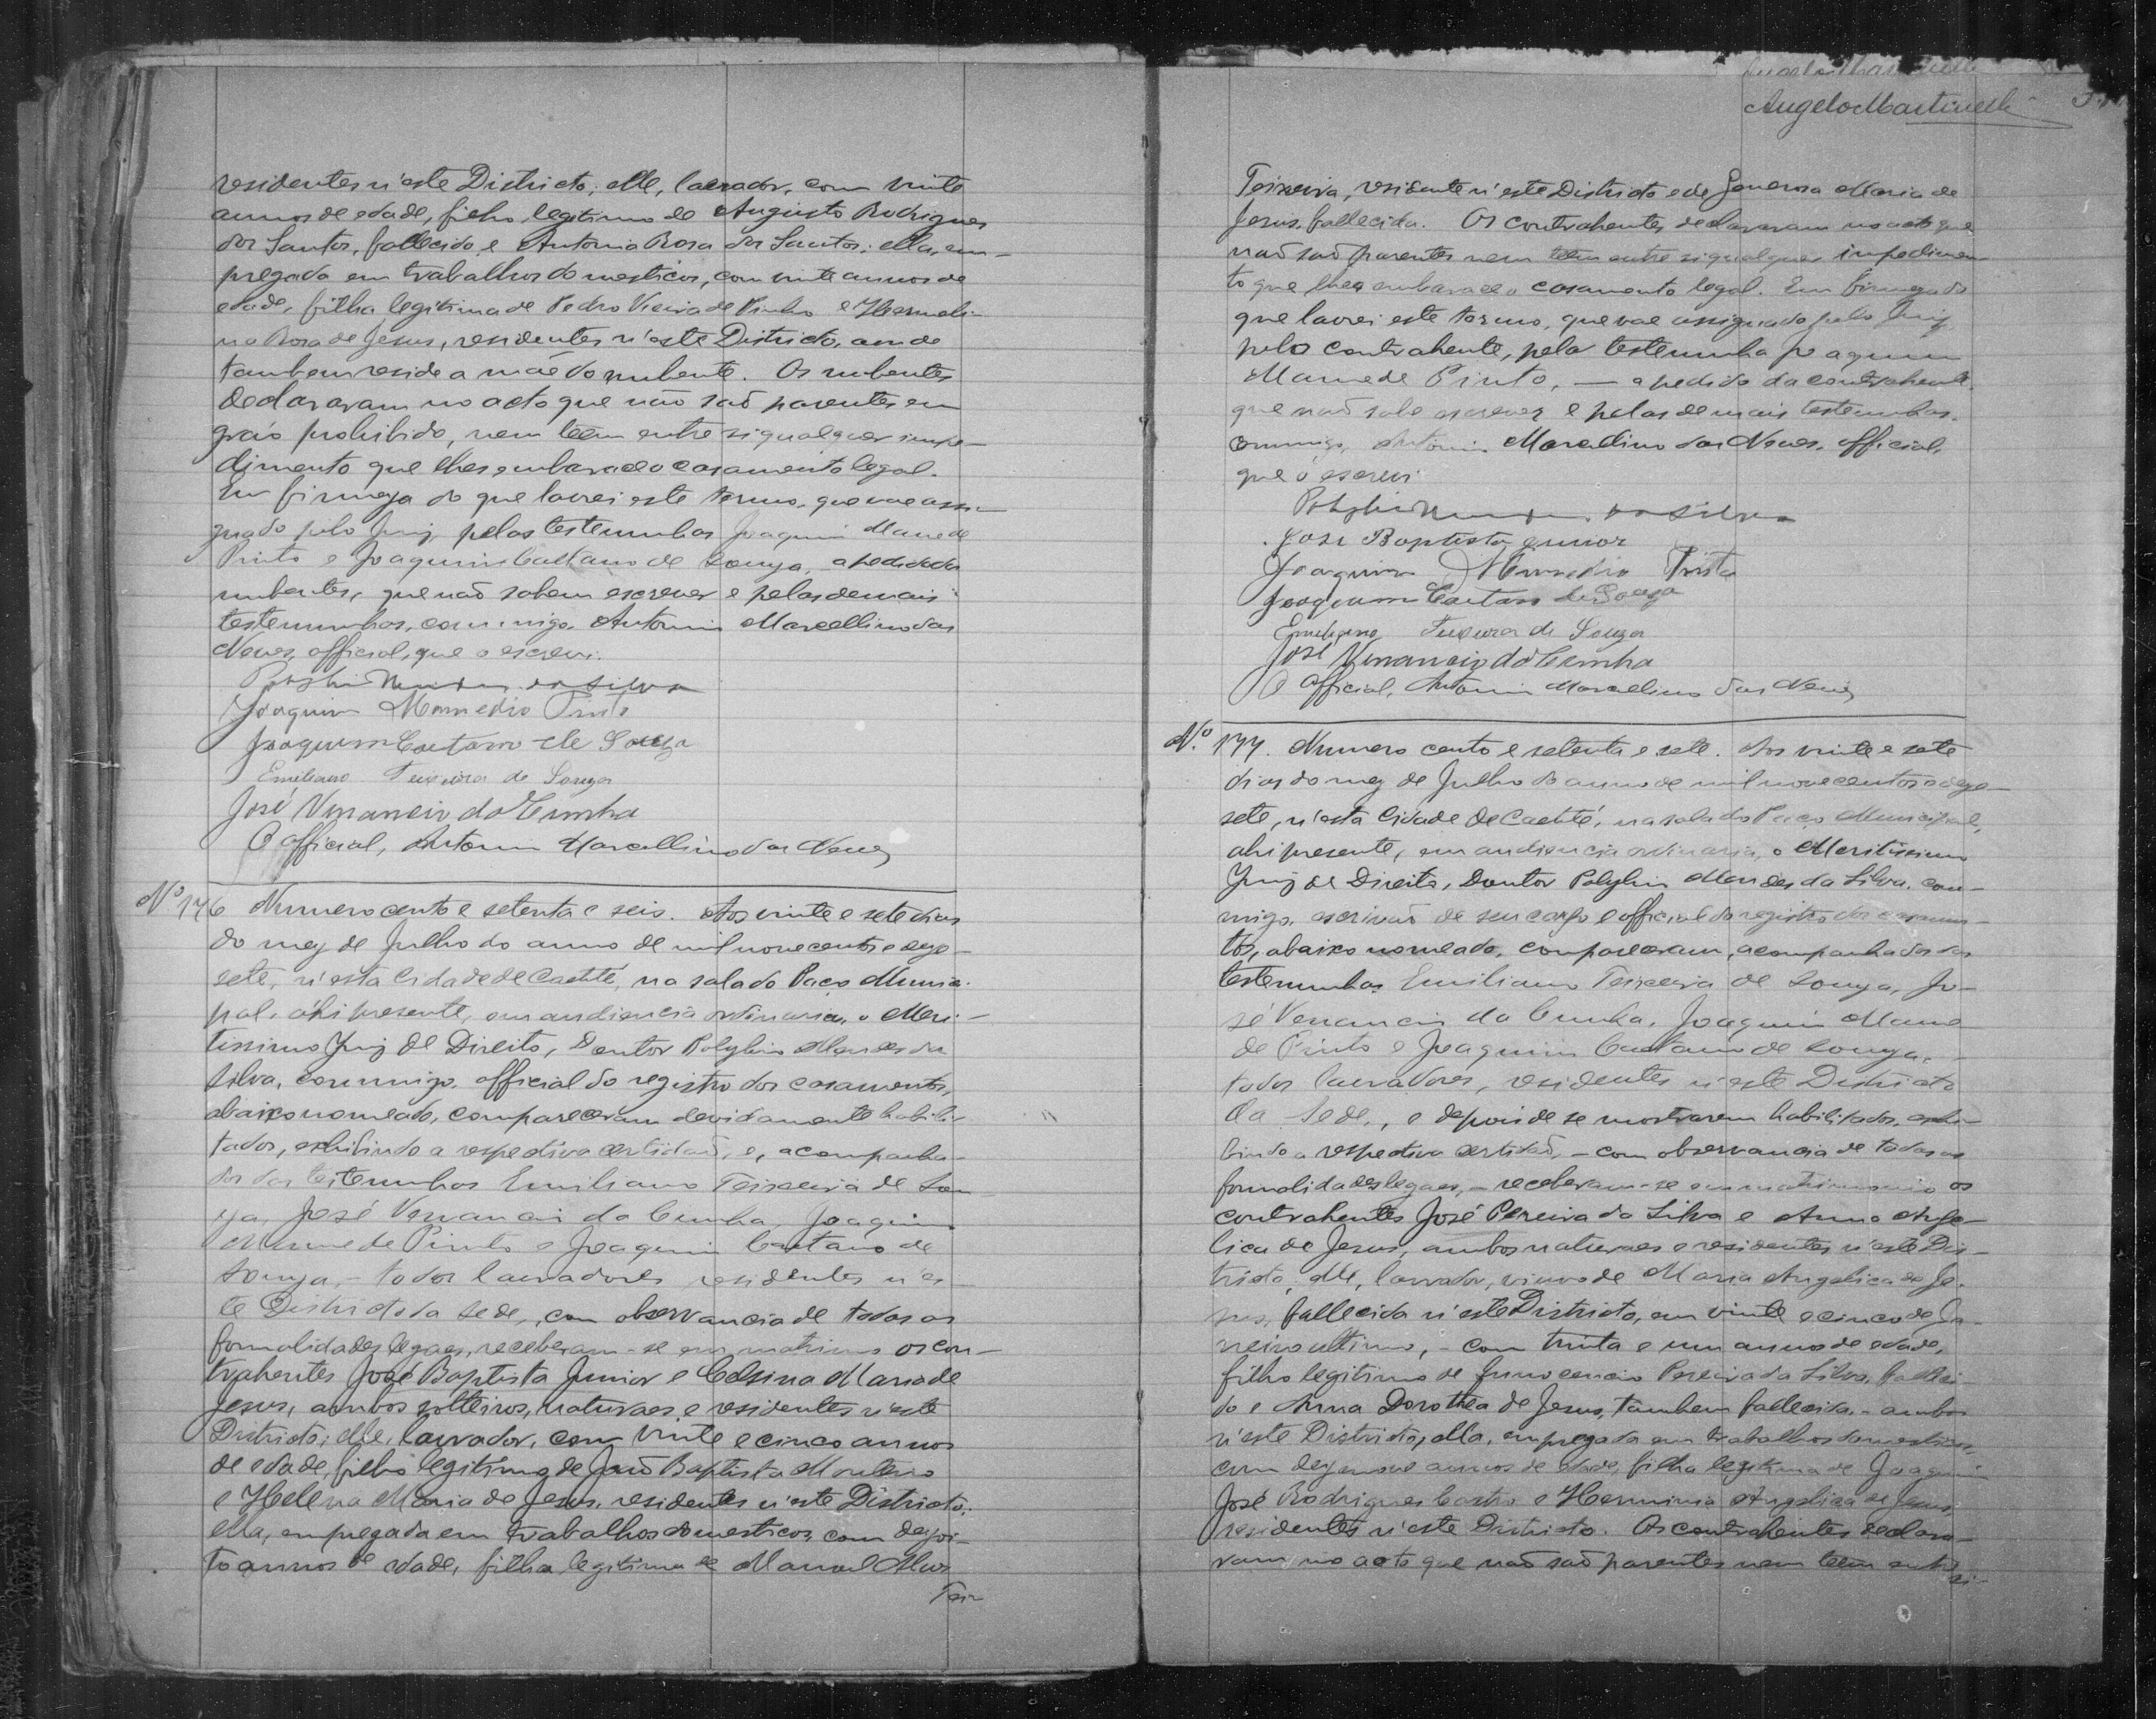 residentes n'este Districto; elle, lavrador, com vinte
annos de edade, filho legitimo de Augusto Rodrigues
dos Santos, fallecido, e Antonia Rosa dos Santos; ella, em-
pregada em trabalhos domesticos, com vinte annos de
edade, filha legitima de Pedro Vieira de Pinho e Hermeli-
na Rosa de Jesus, residentes n'este Districto, aonde
tambem reside a mãe do nubente. Os nubentes
declararam no acto que não são parentes em
gráo prohibido, nem teem entre si qualquer impe-
dimento que lhes embarace o casamento legal.
Em firmeza do que lavrei este termo, que vae assi-
gnado pelo Juiz, pelas testemunhas Joaquim Mamede
Pinto e Joaquim Caetano de Souza, a pedido dos
nubentes, que não sabem escrever e pelas demais
testemunhas, commigo, Antonio Marcellino das
Neves, official, que o escrevi.
Polybio Mendes da Silva
Joaquim Mamedio Pinto
Joaquim Caetano de Souza
Emiliano Teixeira de Souza
José Venancio da Cunha
O official, Antonio Marcellino das Neves
Nº 176 Numero cento e setenta e seis. Aos vinte e sete dias
do mez de Julho do anno de mil novecentos e deze-
sete, n'esta Cidade de Caeteté, na sala do Paço Munici-
pal, ahi presente, em audiencia ordinaria, o Meri-
tissimo Juiz de Direito, Doutor Polybio Mendes da
Silva, commigo, official do registro dos casamentos,
abaixo nomeado, compareceram devidamente habili-
tados, exhibindo a respectiva certidão, e, acompanha-
dos das testemunhas Emiliano Teixeira de Sou-
za, José Venancio da Cunha, Joaquim
Mamede Pinto e Joaquim Caetano de
Souza, - todos lavradores residentes n'es-
te Districto da Sede, com observancia de todas as
formalidades legaes, receberam-se em matrimo os con-
trahentes José Baptista Junior e Celsina Maria de
Jesus, ambos solteiros, naturaes e residentes n'este
Districto; elle, lavrador, com vinte e cinco annos
de edade, filho legitimo de João Baptista Monteiro
e Helena Maria de Jesus, residentes n'este Districto;
ella, empregada em trabalhos domesticos, com dezoi-
to annos de edade, filha legitima de Manoel Alves
Teix
Angelo Martinelli
Angelo Martinelli
Teixeira, residente n'este Districto e de Generosa Maria de
Jesus, fallecida. Os contrahentes declararam no acto que
não são parentes nem teem entre si qualquer impedimen-
to que lhes embarace o casamento legal. Em firmeza do
que lavrei este termo, que vae assignado pelo Juiz,
pelo contrahente, pela testemunha Joaquim
Mamede Pinto, — a pedido da contrahente,
que não sabe escrever e pelas demais testemunhas,
commigo, Antonio Marcelino das Neves, official,
que o escrevi.
Polybio Mendes da Silva
José Baptista Junior
Joaquim Mamedio Pinto
Joaquim Caetano de Souza
Emiliano Teixeira de Souza
José Venancio da Cunha
O official, Antonio Marcellino das Neves
Nº 177. Numero cento e setenta e sete. Aos vinte e sete
dias do mez de Julho do anno de mil novecentos e deze-
sete, n'esta Cidade de Caeteté, na sala do Paço Municipal,
ahi presente, em audiencia ordinaria, o Meritissimo
Juiz de Direito, Doutor Polybio Mendes da Silva, com-
migo, escrivão de seu cargo e official do registro dos casamen-
tos, abaixo nomeado, compareceram, acompanhados das
testemunhas Emiliano Teixeira de Souza, Jo-
sé Venancio da Cunha, Joaquim Mame-
de Pinto e Joaquim Caetano de Souza,
todos lavradores, residentes n'este Districto
da Sede, e depois de se mostrarem habilitados, exhi-
bindo a respectiva certidão, - com observancia de todas as
formalidades legaes, - receberam-se em matrimonio os
contrahentes José Pereira da Silva e Anna Ange-
lica de Jesus, ambos naturaes e residentes n'este Dis-
tricto; elle, lavrador, viuvo de Maria Angelica de Je-
sus, fallecida n'este Districto, em vinte e cinco de Ja-
neiro ultimo, - com trinta e um annos de edade,
filho legitimo de Innocencio Pereira da Silva, falleci-
do e Anna Dorothéa de Jesus, tambem fallecida, - ambos
n'este Districto; ella, empregada em trabalhos domesticos,
com dezenove annos de edade, filha legitima de Joaquim
José Rodrigues Castro e Herminia Angelica de Jesus,
residentes n'este Districto. Os contrahentes declara-
ram no acto que não são parentes nem teem entre
si-